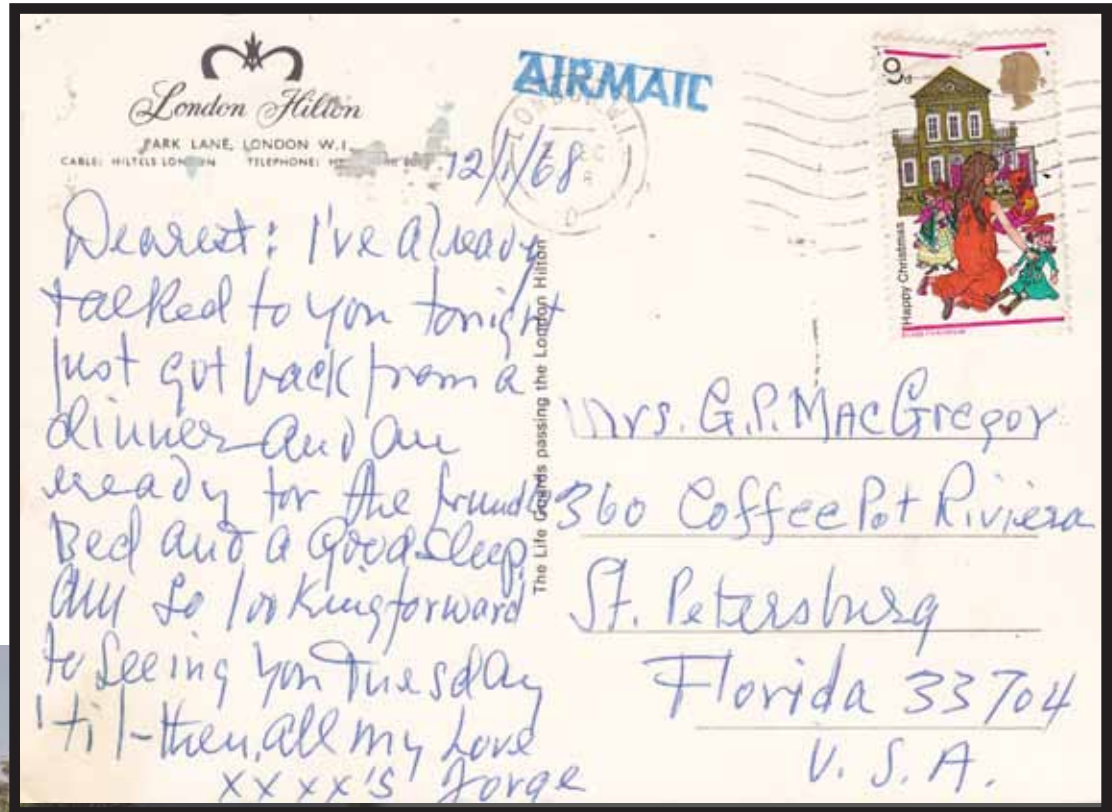 London Hilton
PARK LANE, LONDON W.I.
CABLE: HILTELS LONDON TELEPHONE:
AIRMAIL
12/1/68
9d
Happy Christmas
Dearest: I've already
talked to you tonight
just got back from a
dinner and am
ready for the trundle
Bed and a good sleep.
Am so looking forward
to seeing you Tuesday
'til then, all my love
xxxx's Jorge
The Life Guards passing the London Hilton
Mrs. G.P. MacGregor
360 Coffee Pot Riviera
St. Petersburg
Florida 33704
U.S.A.